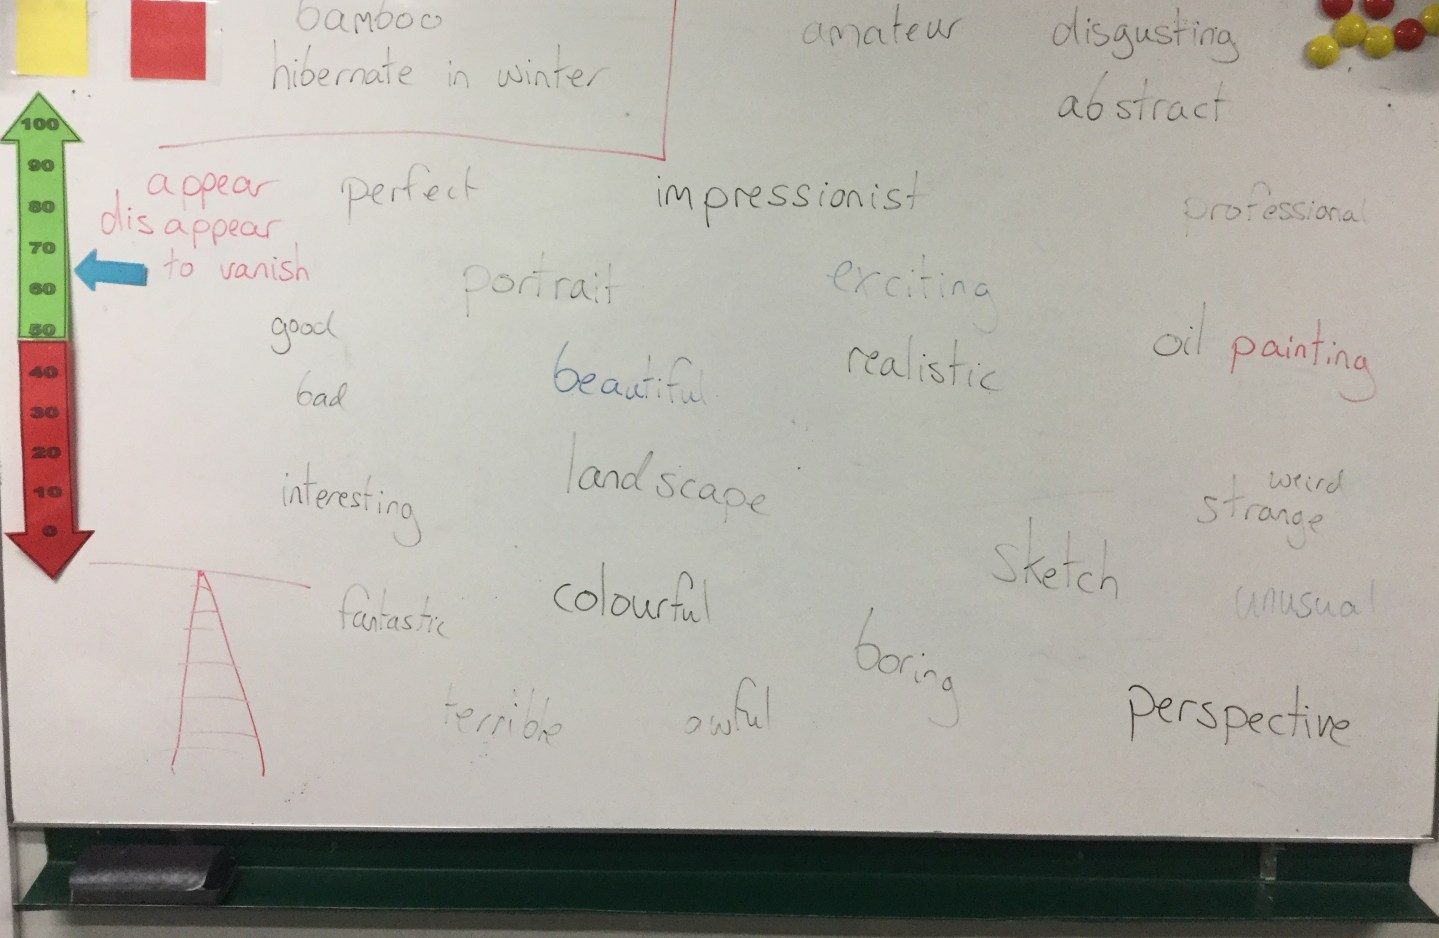 bamboo
hibernate in winter
amateur
disgusting
abstract
100
90
80
70
60
50
40
30
20
10
0
appear
disappear
to vanish
perfect
impressionist
professional
portrait
exciting
good
bad
beautiful
realistic
oil painting
interesting
landscape
weird
strange
sketch
unusual
fantastic
colourful
boring
terrible
awful
perspective